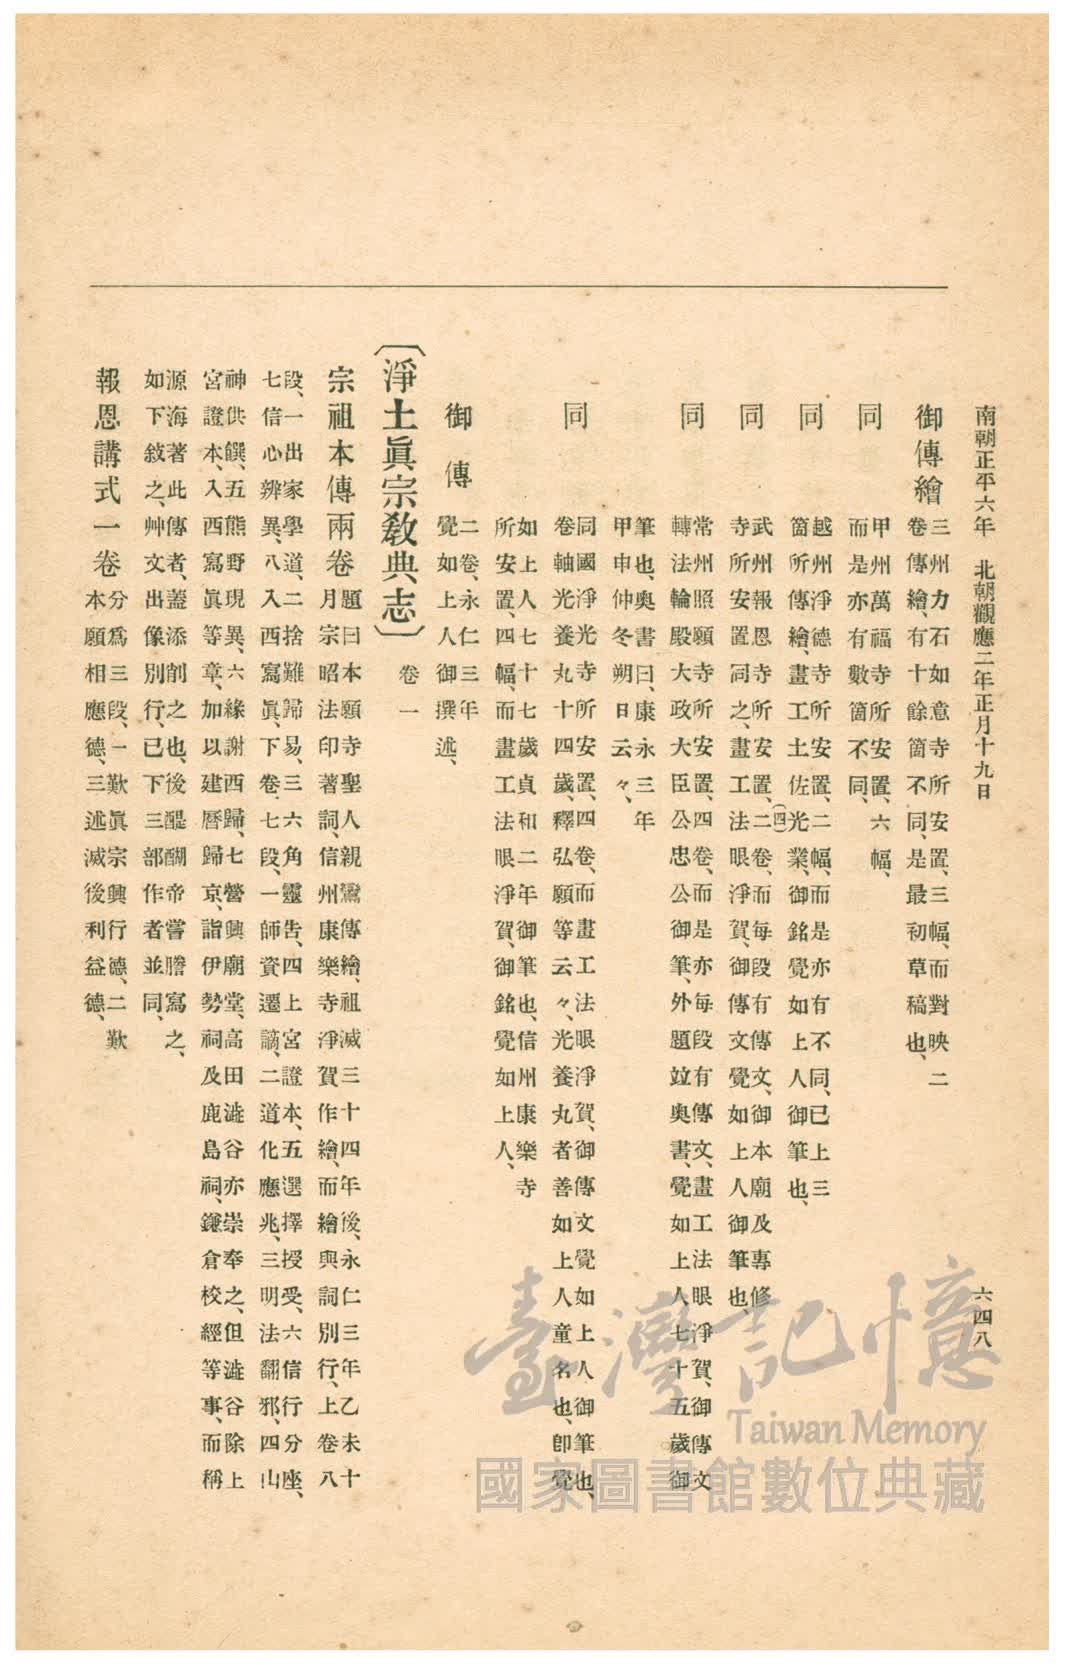 南朝正平六年　北朝觀應二年正月十九日
六四八
御傳繪
三州力石如意寺所安置、三幅、而對映二
卷傳繪、有十餘箇不同、是最初草稿也、
同
甲州萬福寺所安置、六幅、
而是亦有數箇不同、
同
越州淨德寺所安置、二幅、而是亦有不同、已上三
箇所傳繪、畫工土佐光業、御銘覺如上人御筆也、
(四)
同
武州報恩寺所安置、二卷、而每段有傳文、御本廟及專修
寺所安置同之、畫工法眼淨賀、御傳文覺如上人御筆也、
同
常州照願寺所安置、四卷、而是亦每段有傳文、畫工法眼淨賀、御傳文
轉法輪殿大政大臣公忠公御筆、外題竝奧書、覺如上人七十五歲御
筆也、奧書曰、康永三年
甲申仲冬朔日云々、
同
同國淨光寺所安置、四卷、而畫工法眼淨賀、御傳文覺如上人御筆也、
卷軸光養丸十四歲、釋弘願等云々、光養丸者善如上人童名也、卽覺
如上人七十七歲貞和二年御筆也、信州康樂寺
所安置、四幅、而畫工法眼淨賀、御銘覺如上人、
御傳
二卷、永仁三年
覺如上人御撰述、
〔淨土眞宗敎典志〕卷一
宗祖本傳兩卷
題曰本願寺聖人親鸞傳繪、祖滅三十四年後、永仁三年乙未十
月宗昭法印著詞、信州康樂寺淨賀作繪、而繪與詞別行、上卷八
段、一出家學道、二捨難歸易、三六角靈告、四上宮證本、五選擇授受、六信行分座、
七信心辨異、八入西寫眞、下卷七段、一師資遷謫、二道化應兆、三明法翻邪、四山
神供饌、五熊野現異、六緣謝西歸、七營興廟堂、高田澁谷亦崇奉之、但澁谷除上
宮證本、入西寫眞等章、加以建曆歸京、詣伊勢祠及鹿島祠、鎌倉校經等事、而稱
源海著此傳者、蓋添削之也、後醍醐帝嘗謄寫之、
如下敍之、艸文出像別行、已下三部作者並同、
報恩講式一卷
分爲三段、一歎眞宗興行德、二歎
本願相應德、三述滅後利益德、
臺灣記憶
Taiwan Memory
國家圖書館數位典藏